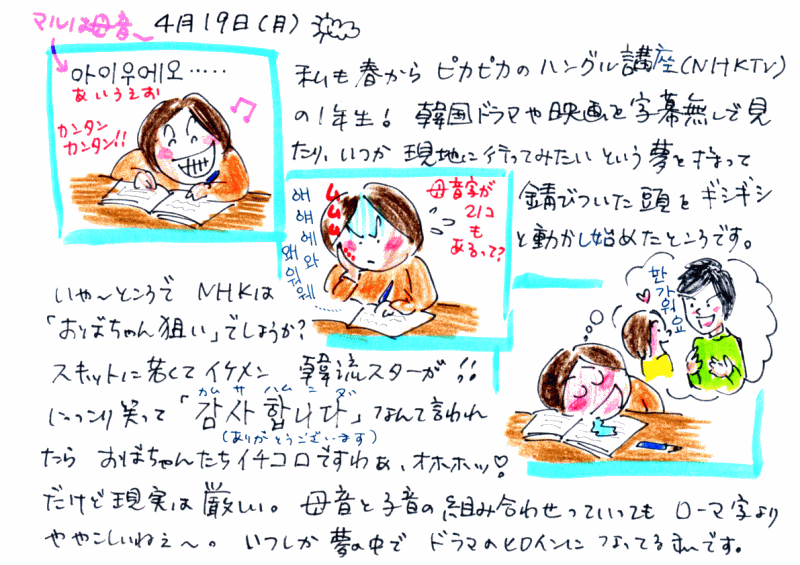 マルは母音〜
4月19日(月)
아이우에오‥‥‥
あいうえお
カンタン
カンタン!!
私も春から ピカピカの ハングル講座(NHKTV)
の1年生! 韓国ドラマや映画を字幕無しで見
たり、いつか 現地に行ってみたい という夢を持って
錆びついた頭をギシギシ
と動かし始めたところです。
애
얘
에
와
왜
워
웨
ムムムム
母音字が
21コ
も
あるって?
いや〜ところで NHKは
「おばちゃん狙い」でしょうか?
スキットに若くてイケメン 韓流スターが!!
カム サ ハム ニ ダ
にっこり笑って「감사합니다」なんて言われ
(ありがとうございます)
たら おばちゃんたちイチコロですわぁ、オホホッ♡
だけど現実は厳しい。 母音と子音の組み合わせっていっても ローマ字より
ややこしいねぇ〜。 いつしか 夢の中で ドラマのヒロインに なってる
です。
반
가
워
요